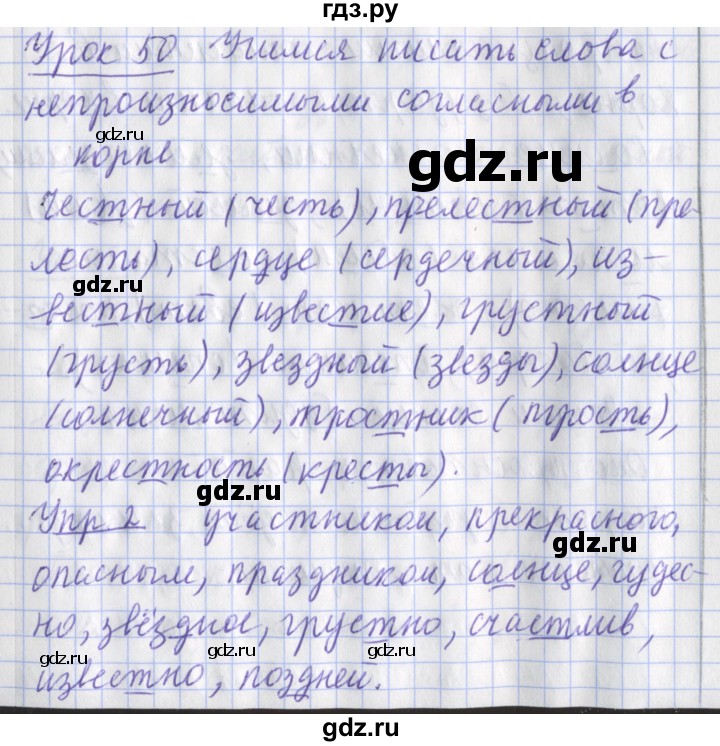 гдз.ру
Урок 50 Учимся писать слова с
непроизносимыми согласными в
gdz.ru
корне
gdz.ru
Честный (честь), прелестный (пре-
лесть), сердце (сердечный), из-
gdz.ru
вестный (известие), грустный
(грусть), звездный (звезды), солнце
(солнечный), тростник (трость),
окрестность (кресты).
gdz.ru
Упр 2 участником, прекрасного,
gdz.ru
опасным, праздником, солнце, чудес-
но, звёздное, грустно, счастлив,
gdz.ru gdz.ru
известно, поздней.
gdz.ru